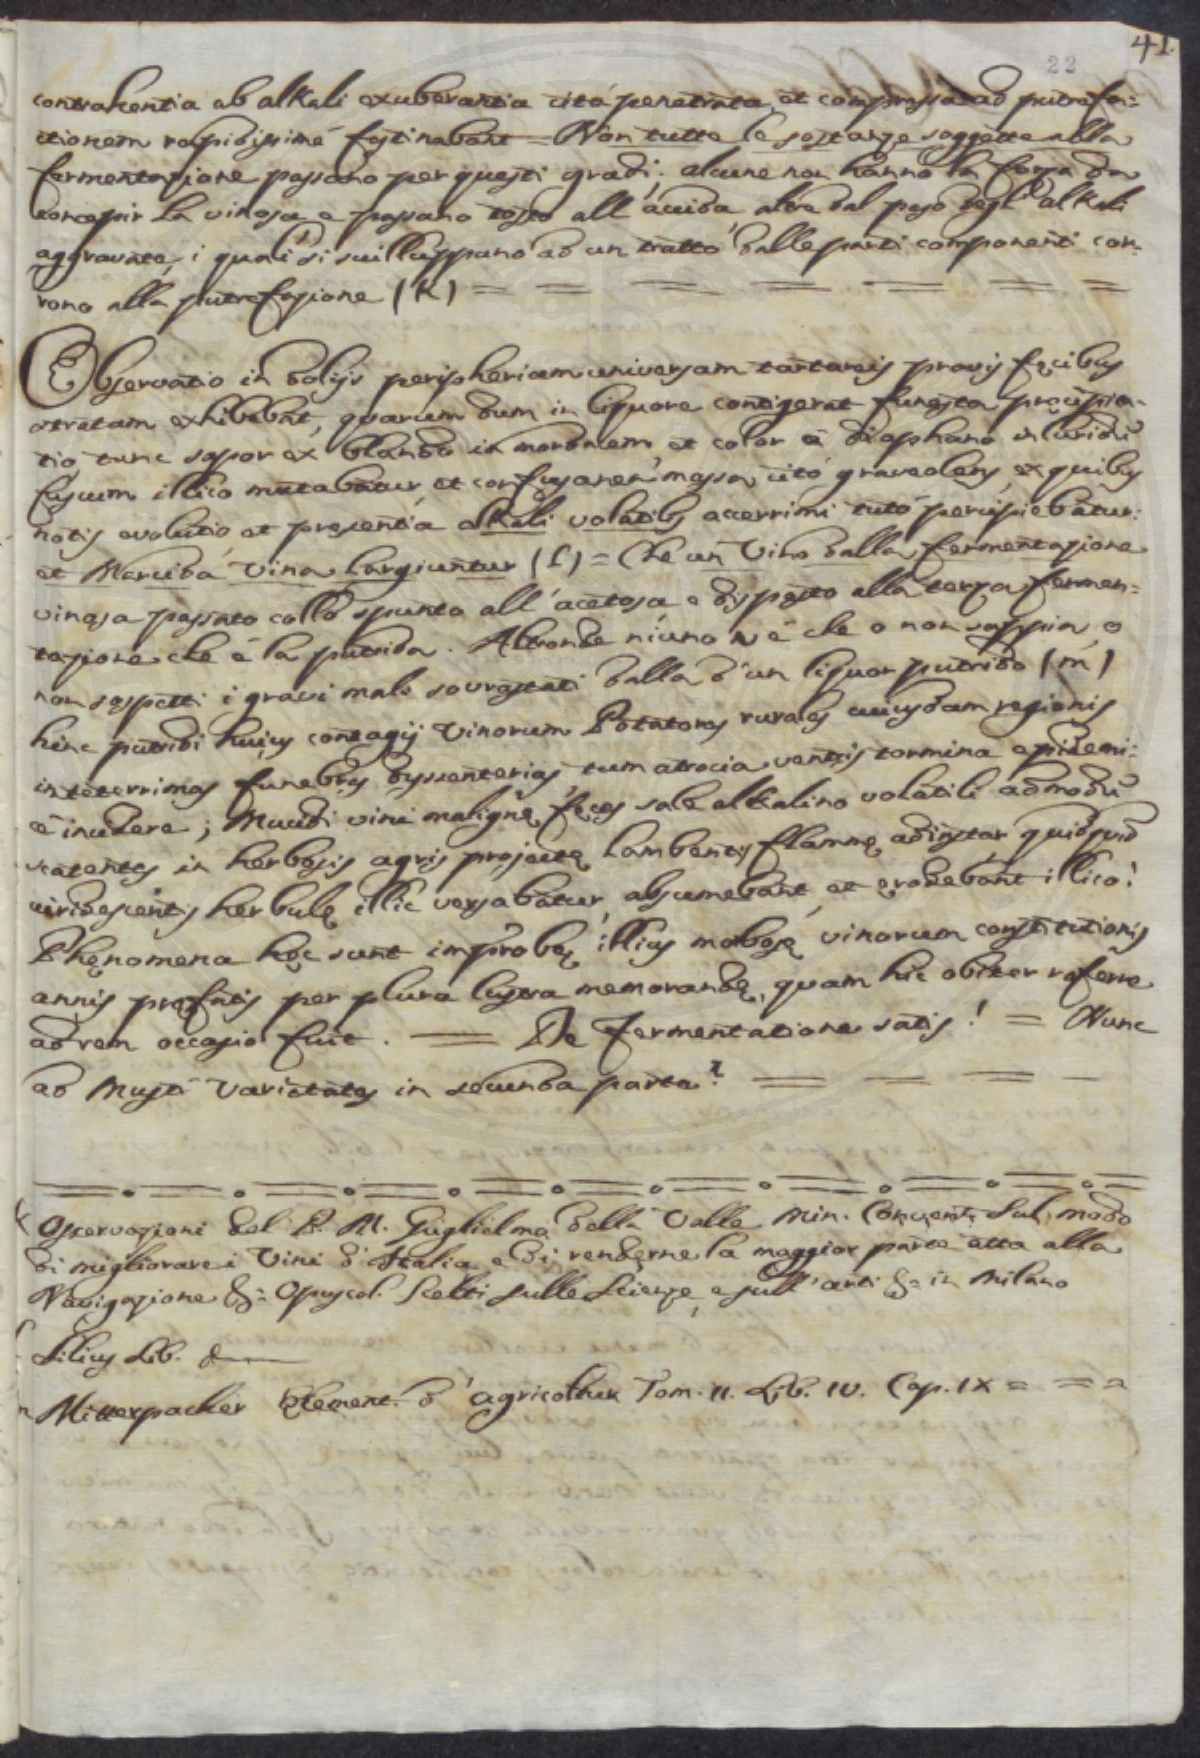 41.
22
contrahentia ab alKali exuberantia citò penetrata, et compressa ad putrefa=
ctionem rapidissimè festinabant = Non tutte le sostanze soggette alla
fermentazione passano per questi gradi: alcune non hanno la forza da
concepir la vinosa e passano tosto all' acida altre dal peso degl' alKali
aggravate, i quali si suilluppano ad un tratto dalle parti componenti cor=
rono alla putrefazione (K) = = = = = = =
Observatio in dolijs peripheriam universam tartareis pravis fęcibus
stratam exhibebat, quarum dum in liquore contigerat funesta pręcipita=
tio, tunc sapor ex blando in mordacem et color è diaphano in
fuscum illico mutabatur, et confusanea massa citò graveolens, ex quibus
notis evolutio et presentia alKali volatilis acerrimi tutò percipiebatur:
et Marcida Vina Largiuntur (l) = Che un Vino dalla fermentazione
vinosa passato collo spunto all' acetosa è disposto alla terza fermen=
tazione che è la putrida. Altronde niuno v' è che o non sappia, o
non sospetti i gravi mali sovrastati dalla d' un liquor putrido (m)
hinc putridi huius contagij Vinorum Potatores rurales cuiusdam regionis
in teterrimas funebres dyssenterias, tum atrocia ventris tormina epidemi=
è incidere; Mucidi vini malignę fęces sale alKalino volatili admodu
scatentes in herbosis agris projectę lambentis flammę adinstar quidquid
viridescentis herbulę illic versabatur absumebant, et erodebant illico!
Phęnomena hęc sunt improbę illius morbosę vinorum constitutionis
annis pręsentis per plura lustra memorandę, quam hic obiter referre
ad rem occasio fuit. = De Fermentatione satis! = Nunc
ad Musti Varietates in secunda parte. = = = =
K Osservazioni del P. M. Guglielmo della Valle Min. Convent. Sul modo
di migliorare i Vini d' Italia e di renderne la maggior parte atta alla
Navigazione &= Opuscol. Scelti sulle Scienze, e sull' arti &= in Milano
l Silius Lib. &
Mitterpacher Element. d' agricoltur Tom. II. Lib. IV. Cap. IX = = =